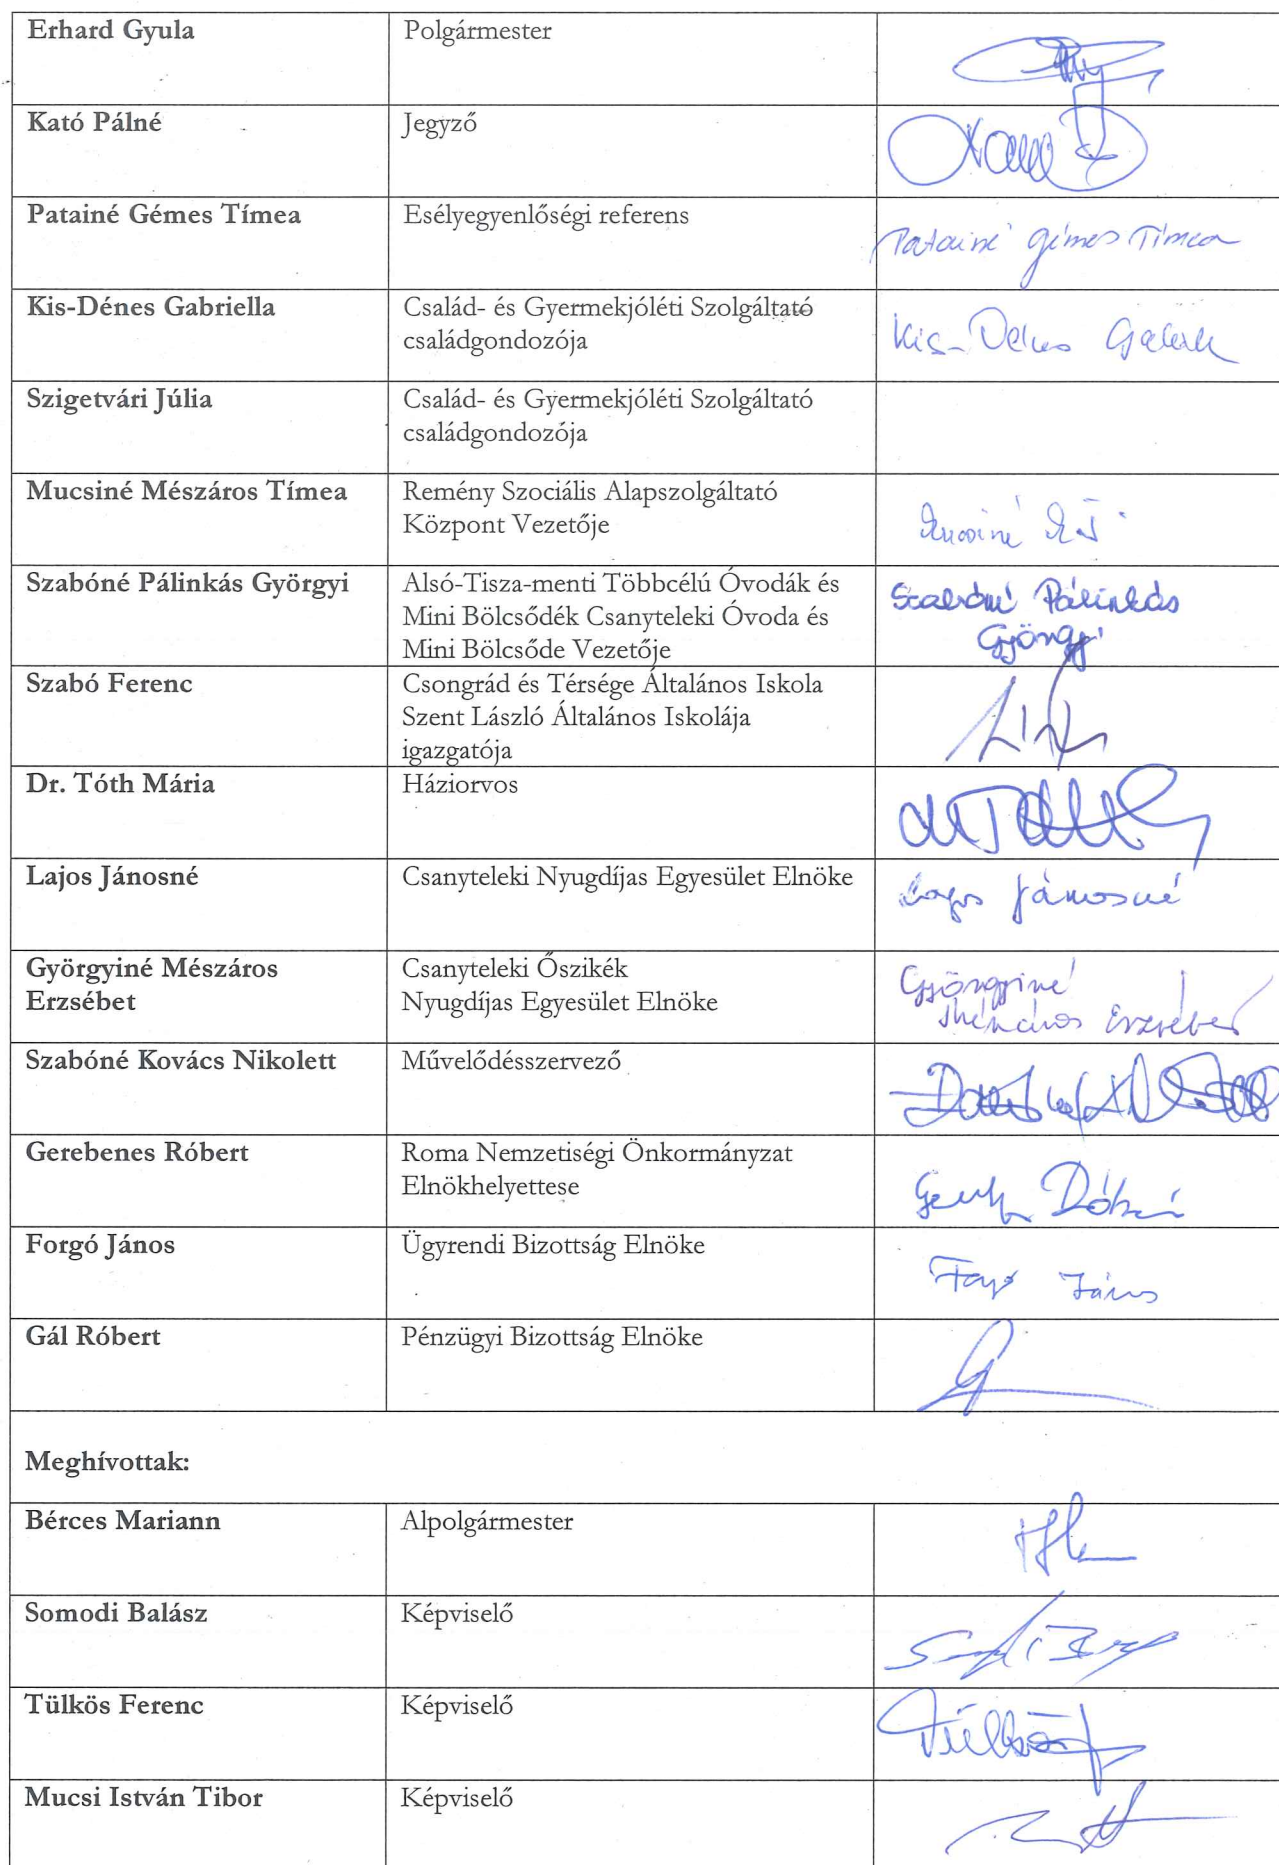 Erhard Gyula
Polgármester
Kató Pálné
Jegyző
Patainé Gémes Tímea
Esélyegyenlőségi referens
Patainé Gémes Tímea
Kis-Dénes Gabriella
Család- és Gyermekjóléti Szolgáltató
családgondozója
Kis-Dénes
Szigetvári Júlia
Család- és Gyermekjóléti Szolgáltató
családgondozója
Mucsiné Mészáros Tímea
Remény Szociális Alapszolgáltató
Központ Vezetője
Szabóné Pálinkás Györgyi
Alsó-Tisza-menti Többcélú Óvodák és
Mini Bölcsődék Csanyteleki Óvoda és
Mini Bölcsőde Vezetője
Szabóné Pálinkás
Szabó Ferenc
Csongrád és Térsége Általános Iskola
Szent László Általános Iskolája
igazgatója
Dr. Tóth Mária
Háziorvos
Lajos Jánosné
Csanyteleki Nyugdíjas Egyesület Elnöke
Lajos Jánosné
Györgyiné Mészáros
Erzsébet
Csanyteleki Őszikék
Nyugdíjas Egyesület Elnöke
Mészáros Erzsébet
Szabóné Kovács Nikolett
Művelődésszervező
Gerebenes Róbert
Roma Nemzetiségi Önkormányzat
Elnökhelyettese
Forgó János
Ügyrendi Bizottság Elnöke
Forgó János
Gál Róbert
Pénzügyi Bizottság Elnöke
Meghívottak:
Bérces Mariann
Alpolgármester
Somodi Balász
Képviselő
Tülkös Ferenc
Képviselő
Mucsi István Tibor
Képviselő